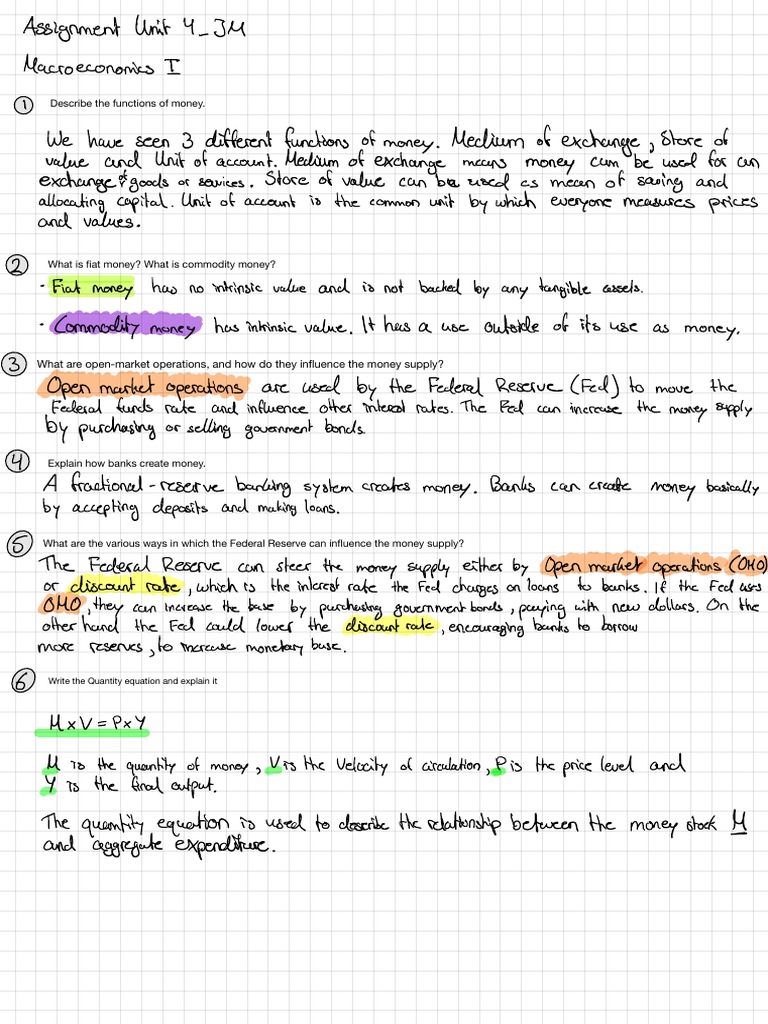 Assignment Unit 4_JM
Macroeconomics I
1 Describe the functions of money.
We have seen 3 different functions of money. Medium of exchange, Store of
value and Unit of account. Medium of exchange means money can be used for an
exchange of goods or services. Store of value can be used as mean of saving and
allocating capital. Unit of account is the common unit by which everyone measures prices
and values.
2 What is fiat money? What is commodity money?
· Fiat money has no intrinsic value and is not backed by any tangible assets.
· Commodity money has intrinsic value. It has a use outside of its use as money.
3 What are open-market operations, and how do they influence the money supply?
Open market operations are used by the Federal Reserve (Fed) to move the
Federal funds rate and influence other interest rates. The Fed can increase the money supply
by purchasing or selling government bonds.
4 Explain how banks create money.
A fractional-reserve banking system creates money. Banks can create money basically
by accepting deposits and making loans.
5 What are the various ways in which the Federal Reserve can influence the money supply?
The Federal Reserve can steer the money supply either by Open market operations (OMO)
or discount rate, which is the interest rate the Fed charges on loans to banks. If the Fed uses
OMO, they can increase the base by purchasing government bonds, paying with new dollars. On the
other hand the Fed could lower the discount rate, encouraging banks to borrow
more reserves, to increase monetary base.
6 Write the Quantity equation and explain it
M x V = P x Y
M is the quantity of money, V is the Velocity of circulation, P is the price level and
Y is the final output.
The quantity equation is used to describe the relationship between the money stock M
and aggregate expenditure.